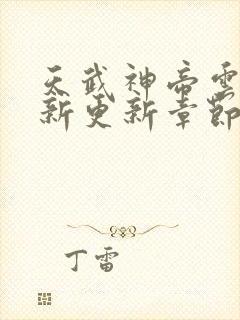 天武神帝雲
新更新章節
丁雷